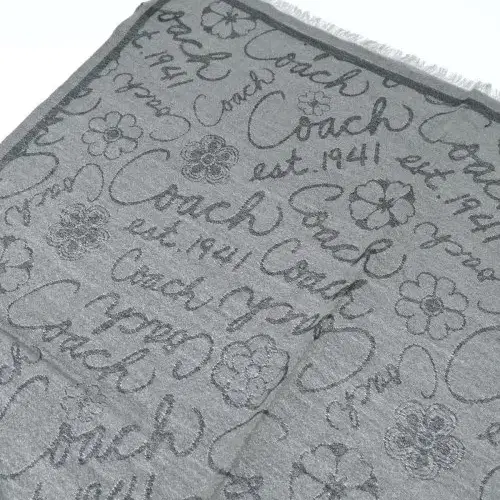 Coach
Coach
est. 1941
Coach
Coach
Coach
est. 1941
Coach
est. 1941
Coach
est. 1941
Coach
Coach
est. 1941
Coach
Coach
Coach
Coach
Coach
Coach
Coach
Coach